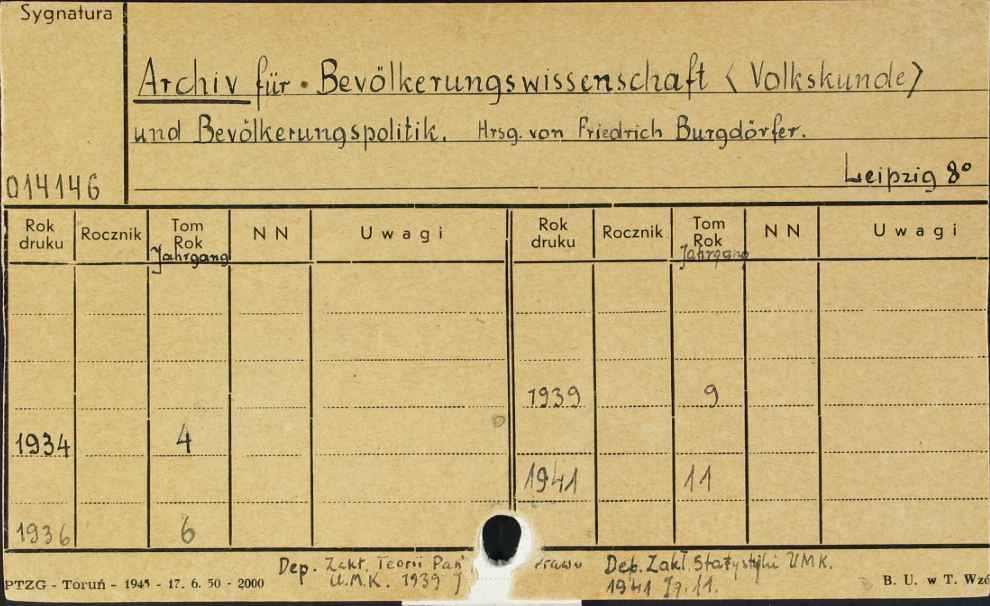 Sygnatura
Archiv für Bevölkerungswissenschaft (Volkskunde)
und Bevölkerungspolitik. Hrsg. von Friedrich Burgdörfer.
014146
Leipzig 8°
Rok druku Rocznik Tom Rok Jahrgang N N Uwagi Rok druku Rocznik Tom Rok Jahrgang N N Uwagi
1939 9
1934 4
1941 11
1936 6
Dep. Zakł. Teorii Pań Prawa Dep. Zakł. Statystyki UMK.
U.M.K. 1939 J 1941 Jg. 11.
PTZG - Toruń - 1945 - 17. 6. 50 - 2000 B. U. w T. Wzó